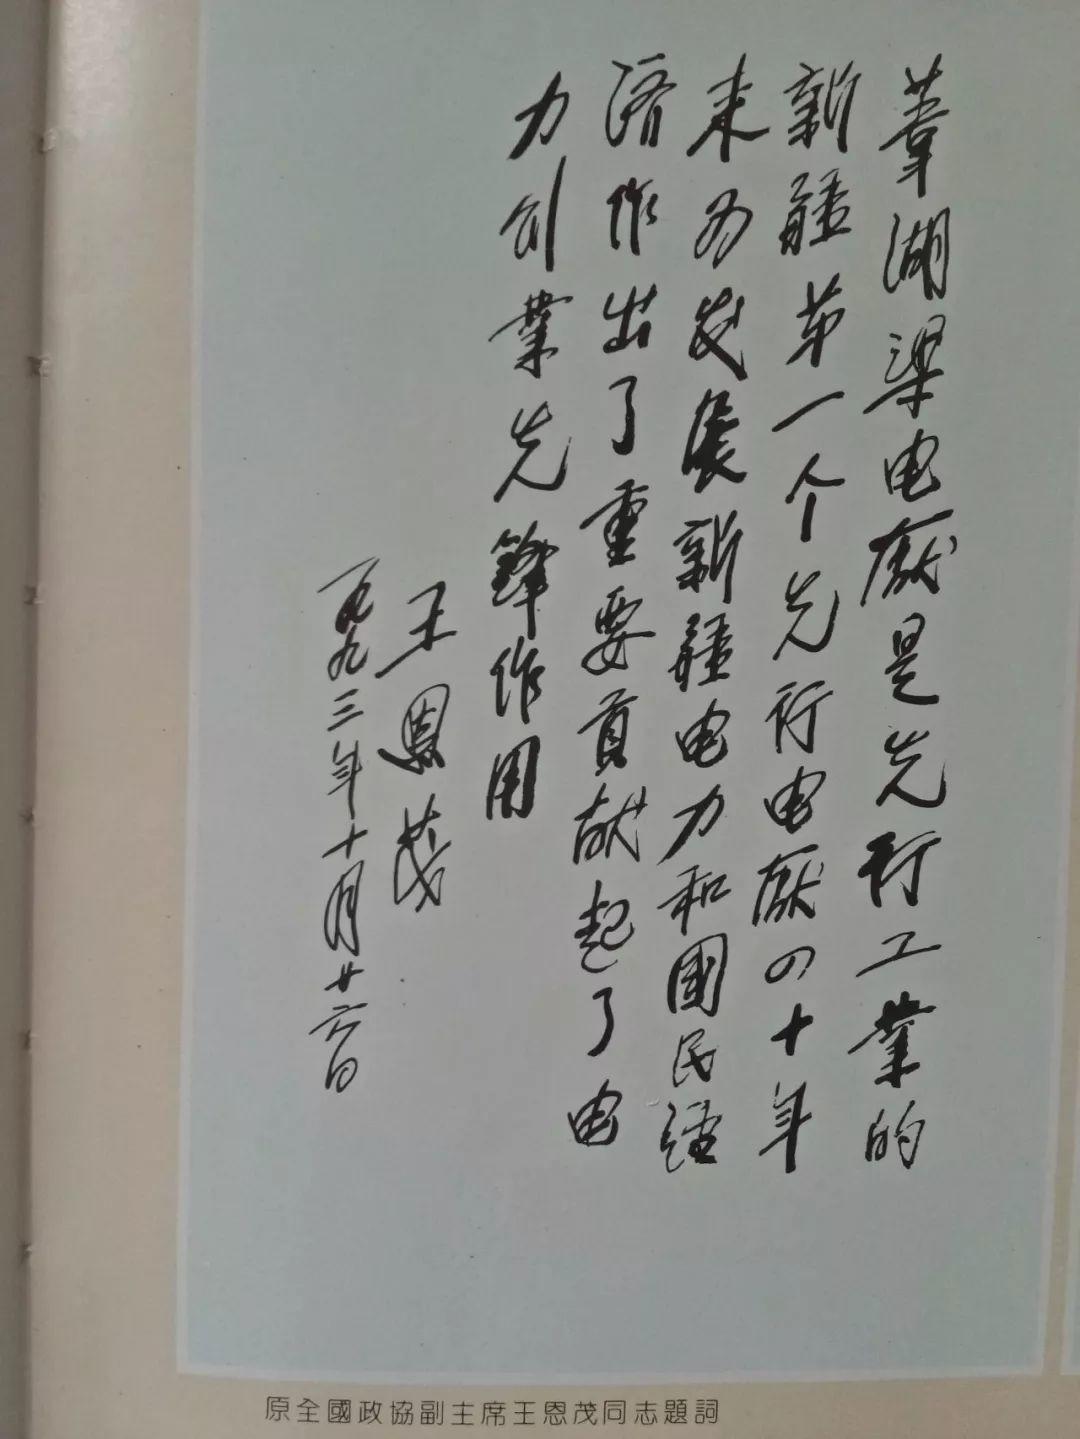 葦湖梁电厰是先行工業的
新疆第一个先行电厰四十年
来为发展新疆电力和國民经
济作出了重要貢献起了电
力创業先鋒作用
王恩茂
一九九三年十月廿六日
原全國政協副主席王恩茂同志題詞